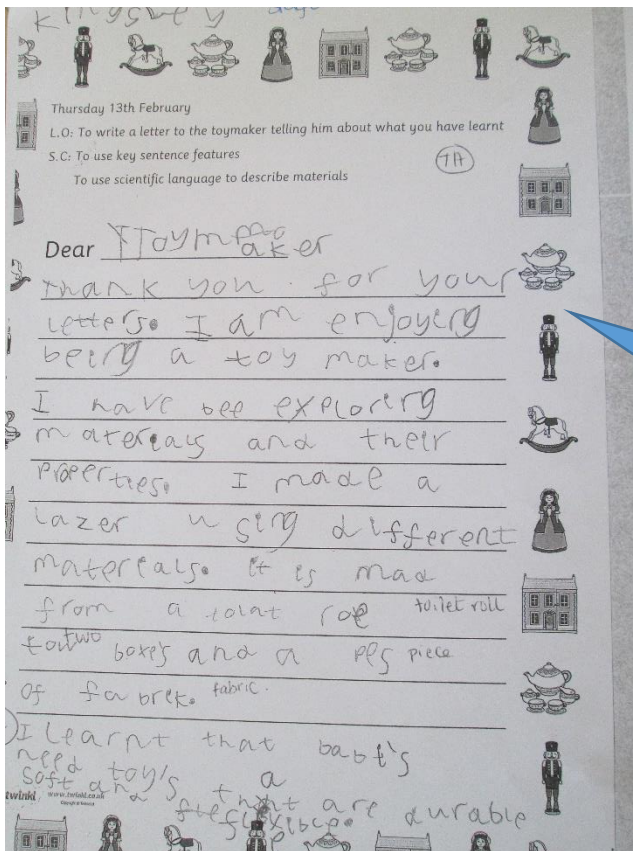 Kingsley
Thursday 13th February
L.O: To write a letter to the toymaker telling him about what you have learnt
S.C: To use key sentence features
To use scientific language to describe materials
TA
Dear Toymaker
thank you. for your
letters. I am enjoying
being a toy maker.
I have bee exploring
materials and their
properties. I made a
lazer using different
materials. it is mad
from a tolat roe toilet roll
two boxe's and a pes piece
of fabrek. fabric.
I learnt that babt's
need toy's a
soft and that are durable
flexible.
twinkl www.twinkl.co.uk